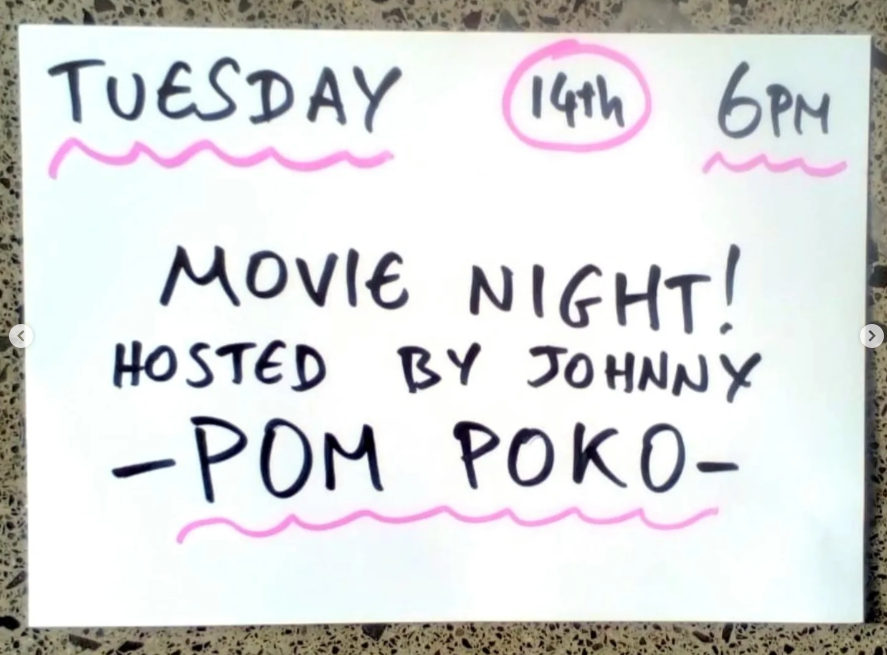 TUESDAY 14th 6PM
MOVIE NIGHT!
HOSTED BY JOHNNY
-POM POKO-